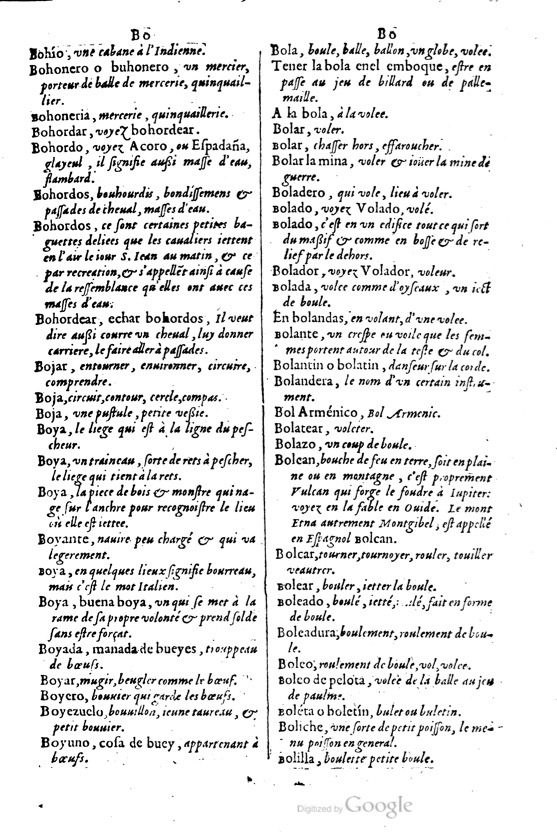 Bo
Bohío, vne cabane à l'Indienne.
Bohonero o buhonero, un mercier,
porteur de balle de mercerie, quinquail-
lier.
Bohoneria, mercerie, quinquaillerie.
Bohordar, voyez bohordear.
Bohordo, voyez Acoro, ou Espadaña,
glayeul, il signifie außi masse d'eau,
flambard.
Bohordos, bouhourdis, bondissemens &
passades de cheual, masses d'eau.
Bohordos, ce sont certaines petites ba-
guettes deliees que les caualiers iettent
en l'air le iour S. Iean au matin, & ce
par recreation, & s'appellēt ainsi à cause
de la ressemblance qu'elles ont auec ces
masses d'eau.
Bohordear, echar bohordos, il veut
dire außi courre vn cheual, luy donner
carriere, le faire aller à passades.
Bojar, entourner, enuironner, circuire,
comprendre.
Boja, circuit, contour, cercle, compas.
Boja, vne pustule, petite veßie.
Boya, le liege qui est à la ligne du pes-
cheur.
Boya, vn traineau, sorte de rets à pescher,
le liege qui tient à la rets.
Boya, la piece de bois & monstre qui na-
ge sur l'anchre pour recognoistre le lieu
où elle est iettee.
Boyante, nauire peu chargé & qui va
legerement.
Boya, en quelques lieux signifie bourreau,
mais c'est le mot Italien.
Boya, buena boya, vn qui se met à la
rame de sa propre volonté & prend solde
sans estre forçat.
Boyada, manada de bueyes, trouppeau
de bœufs.
Boyar, mugir, beugler comme le bœuf.
Boyero, bouuier qui garde les bœufs.
Boyezuelo, bouuillon, ieune taureau, &
petit bouuier.
Boyuno, cosa de buey, appartenant à
bœufs.
Bo
Bola, boule, balle, ballon, vn globe, volee.
Tener la bola en el emboque, estre en
passe au jeu de billard ou de palle-
maille.
A la bola, à la volee.
Bolar, voler.
Bolar, chasser hors, effaroucher.
Bolar la mina, voler & iouer la mine de
guerre.
Boladero, qui vole, lieu à voler.
Bolado, voyez Volado, volé.
Bolado, c'est en vn edifice tout ce qui sort
du maßif & comme en bosse & de re-
lief par le dehors.
Bolador, voyez Volador, voleur.
Bolada, volee comme d'oyseaux, vn iect
de boule.
En bolandas, en volant, d'vne volee.
Bolante, vn crespe ou voile que les fem-
mes portent autour de la teste & du col.
Bolantin o bolatin, danseur sur la corde.
Bolandera, le nom d'vn certain instru-
ment.
Bol Arménico, Bol Armenic.
Bolatear, volleter.
Bolazo, vn coup de boule.
Bolcan, bouche de feu en terre, soit en plai-
ne ou en montagne, c'est proprement
Vulcan qui forge le foudre à Iupiter:
voyez en la fable en Ouide. Le mont
Etna autrement Montgibel, est appellé
en Espagnol Bolcan.
Bolcar, tourner, tournoyer, rouler, touiller
veautrer.
Bolear, bouler, ietter la boule.
Boleado, boulé, ietté, fait en forme
de boule.
Boleadura, boulement, roulement de bou-
le.
Boleo, roulement de boule, vol, volee.
Boleo de pelota, volee de la balle au jeu
de paulme.
Boléta o boletín, bulet ou buletin.
Boliche, vne sorte de petit poisson, le me-
nu poisson en general.
Bolilla, boulette petite boule.
Digitized by Google